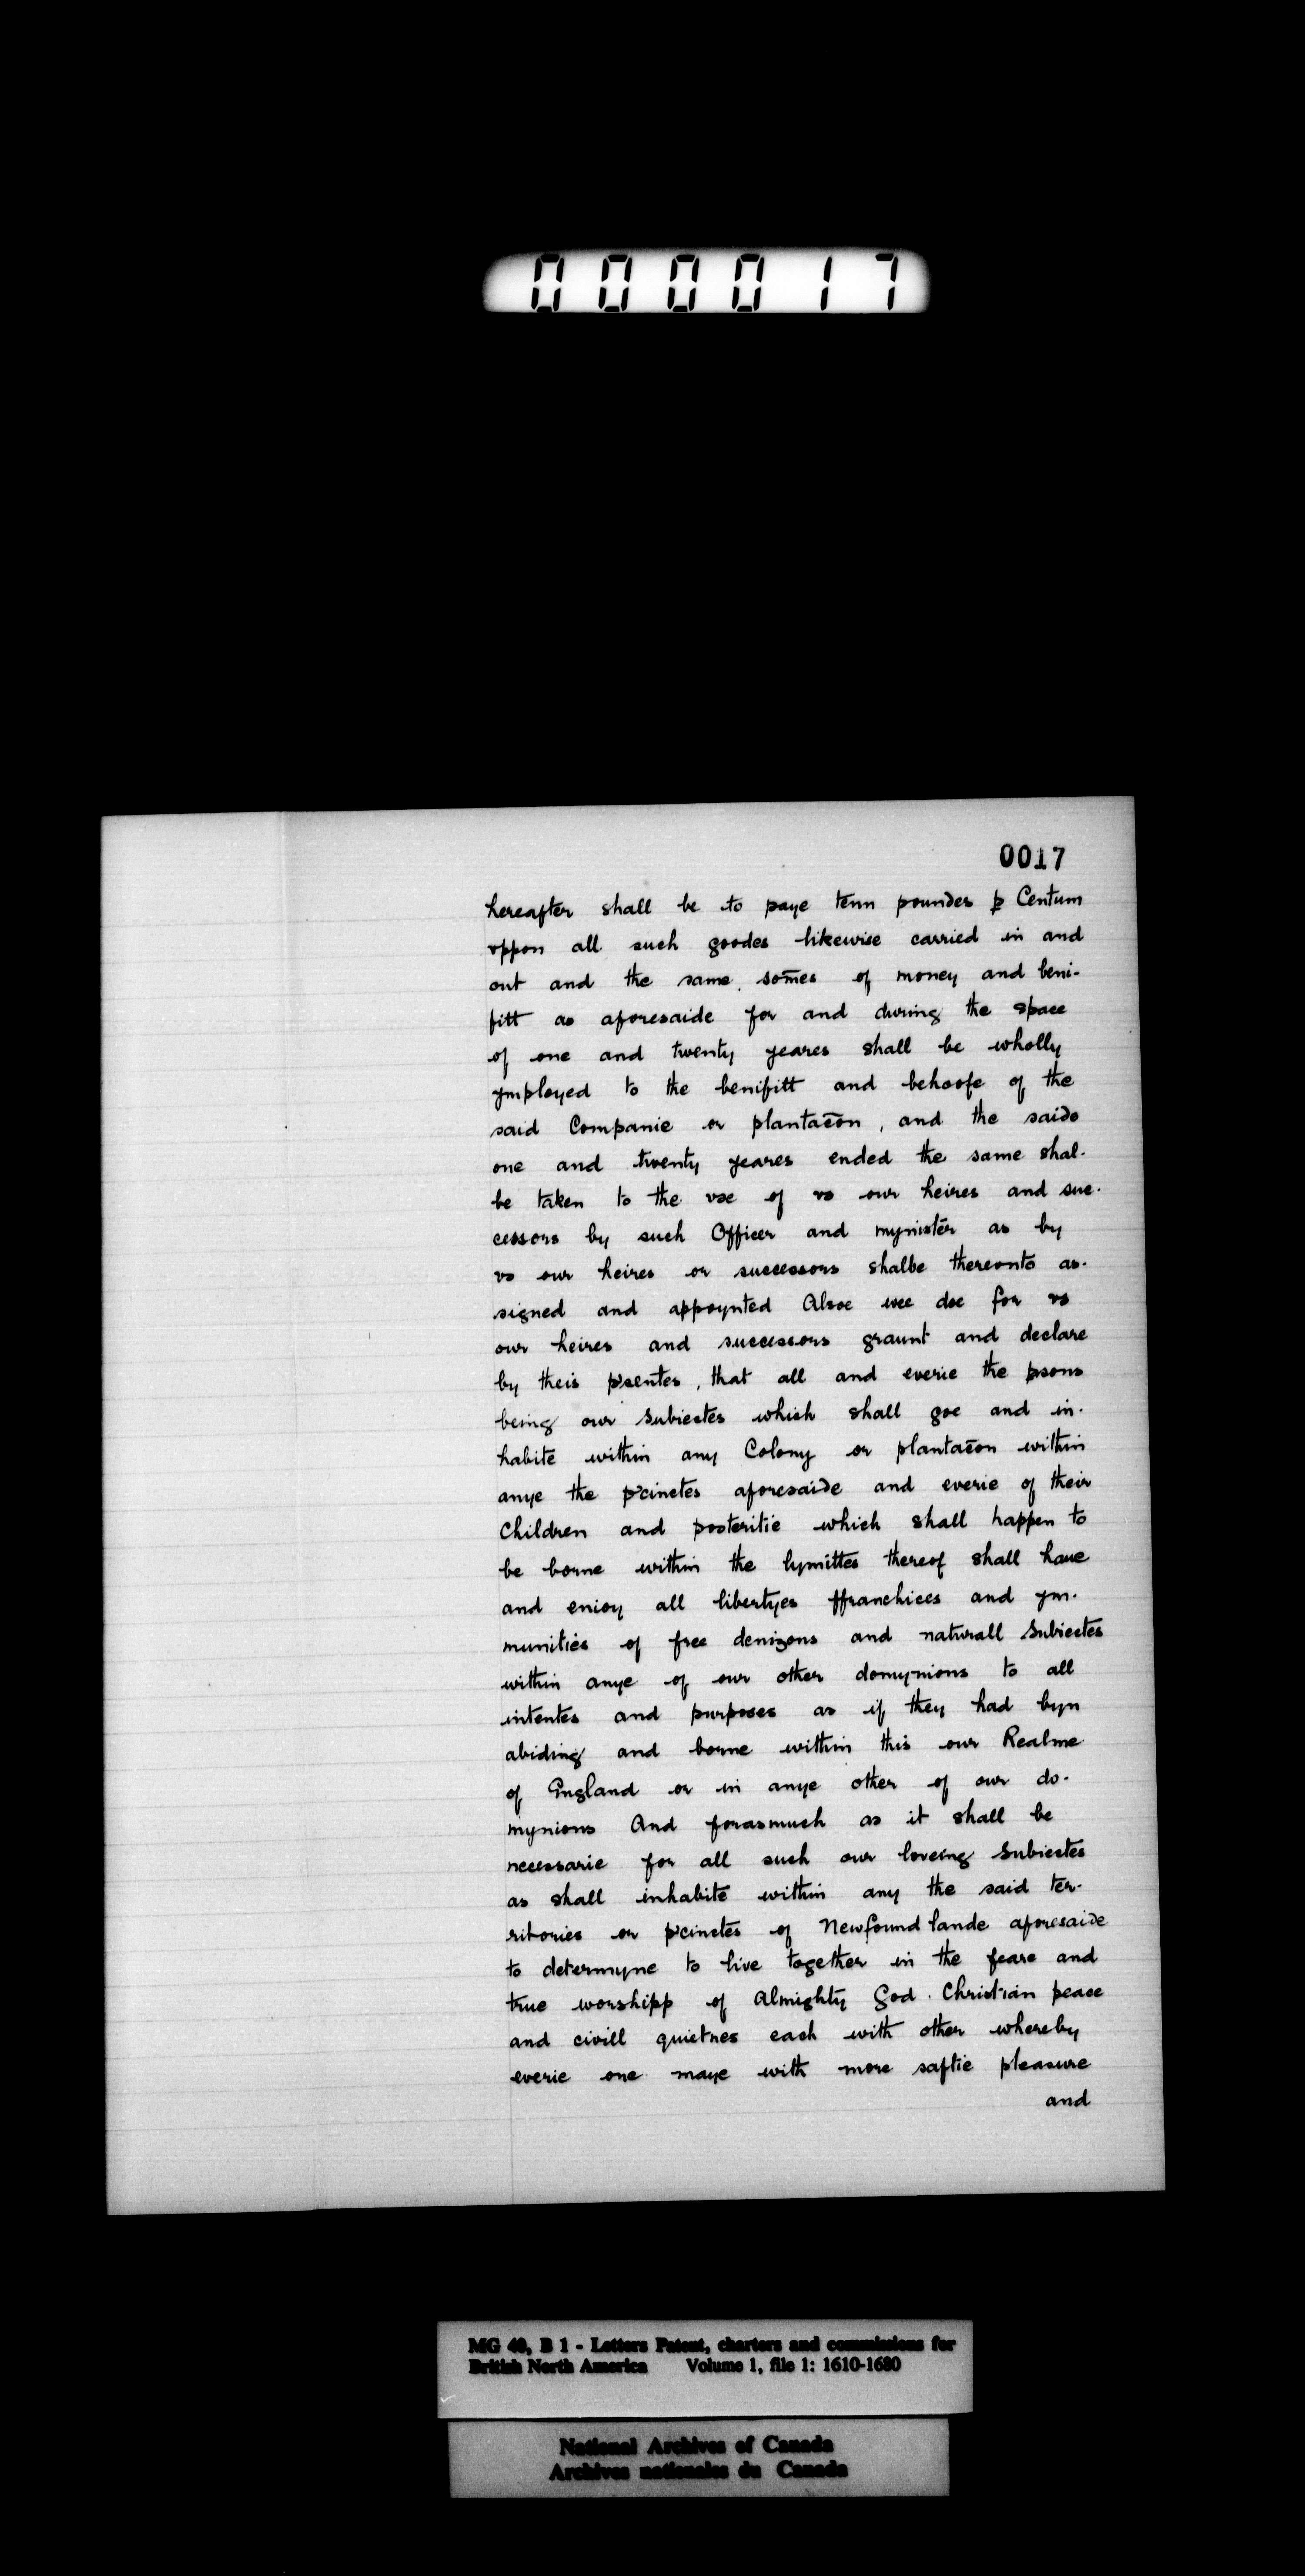 000017
0017
hereafter shall be to paye tenn poundes ꝑ Centum
vppon all such goodes likewise carried in and
out and the same, som̄es of money and beni-
fitt as aforesaide for and during the space
of one and twenty yeares shall be wholly
ymployed to the benifitt and behoofe of the
said Companie or plantac̄on, and the saide
one and twenty yeares ended the same shal-
be taken to the vse of vs our heires and suc-
cessors by such Officer and mynister as by
vs our heires or successors shalbe thereonto as-
signed and appoynted Alsoe wee doe for vs
our heires and successors graunt and declare
by theis p'sentes, that all and everie the ꝑsons
being our Subiectes which shall goe and in-
habite within any Colony or plantac̄on within
anye the p'cinctes aforesaide and everie of their
Children and posteritie which shall happen to
be borne within the lymittes thereof shall haue
and enioy all libertyes ffranchices and ym-
munities of free denizons and naturall Subiectes
within anye of our other domynions to all
intentes and purposes as if they had byn
abiding and borne within this our Realme
of England or in anye other of our do-
mynions And forasmuch as it shall be
necessarie for all such our loveing Subiectes
as shall inhabite within any the said ter-
ritories or p'cinctes of Newfound lande aforesaide
to determyne to live together in the feare and
true worshipp of Almighty God. Christian peace
and civill quietnes each with other whereby
everie one maye with more saftie pleasure
and
MG 40, B 1 - Letters Patent, charters and commissions for
British North America Volume 1, file 1: 1610-1680
National Archives of Canada
Archives nationales du Canada